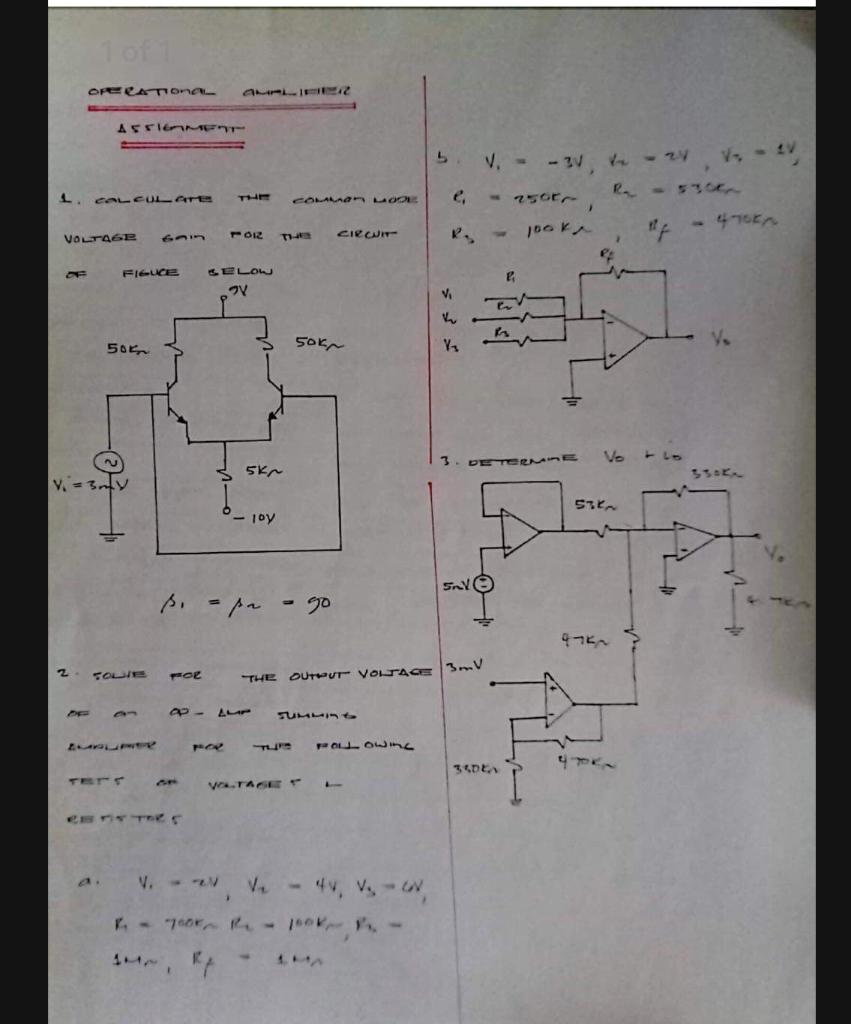 1 of 1
OPERATIONAL AMPLIFIER
ASSIGNMENT
1. CALCULATE THE COMMON MODE
VOLTAGE GAIN FOR THE CIRCUIT
OF FIGURE BELOW
9V
50KΩ
50KΩ
Vi = 3mV
5KΩ
-10V
β1 = β2 = 90
2. SOLVE FOR THE OUTPUT VOLTAGE
OF AN OP-AMP SUMMING
AMPLIFIER FOR THE FOLLOWING
SETS OF VOLTAGES &
RESISTORS
a. V1 = 2V, V2 = 4V, V3 = 6V,
R1 = 700KΩ R2 = 100KΩ, R3 =
1MΩ, Rf = 1MΩ
b. V1 = -3V, V2 = 2V, V3 = 1V,
R1 = 250KΩ, R2 = 530KΩ
R3 = 100KΩ, Rf = 470KΩ
Rf
R1
V1
R2
V2
R3
V3
-
+
Vo
3. DETERMINE Vo & io
330KΩ
53KΩ
-
+
Vo
5mV
47KΩ
3mV
+
-
330KΩ
470KΩ